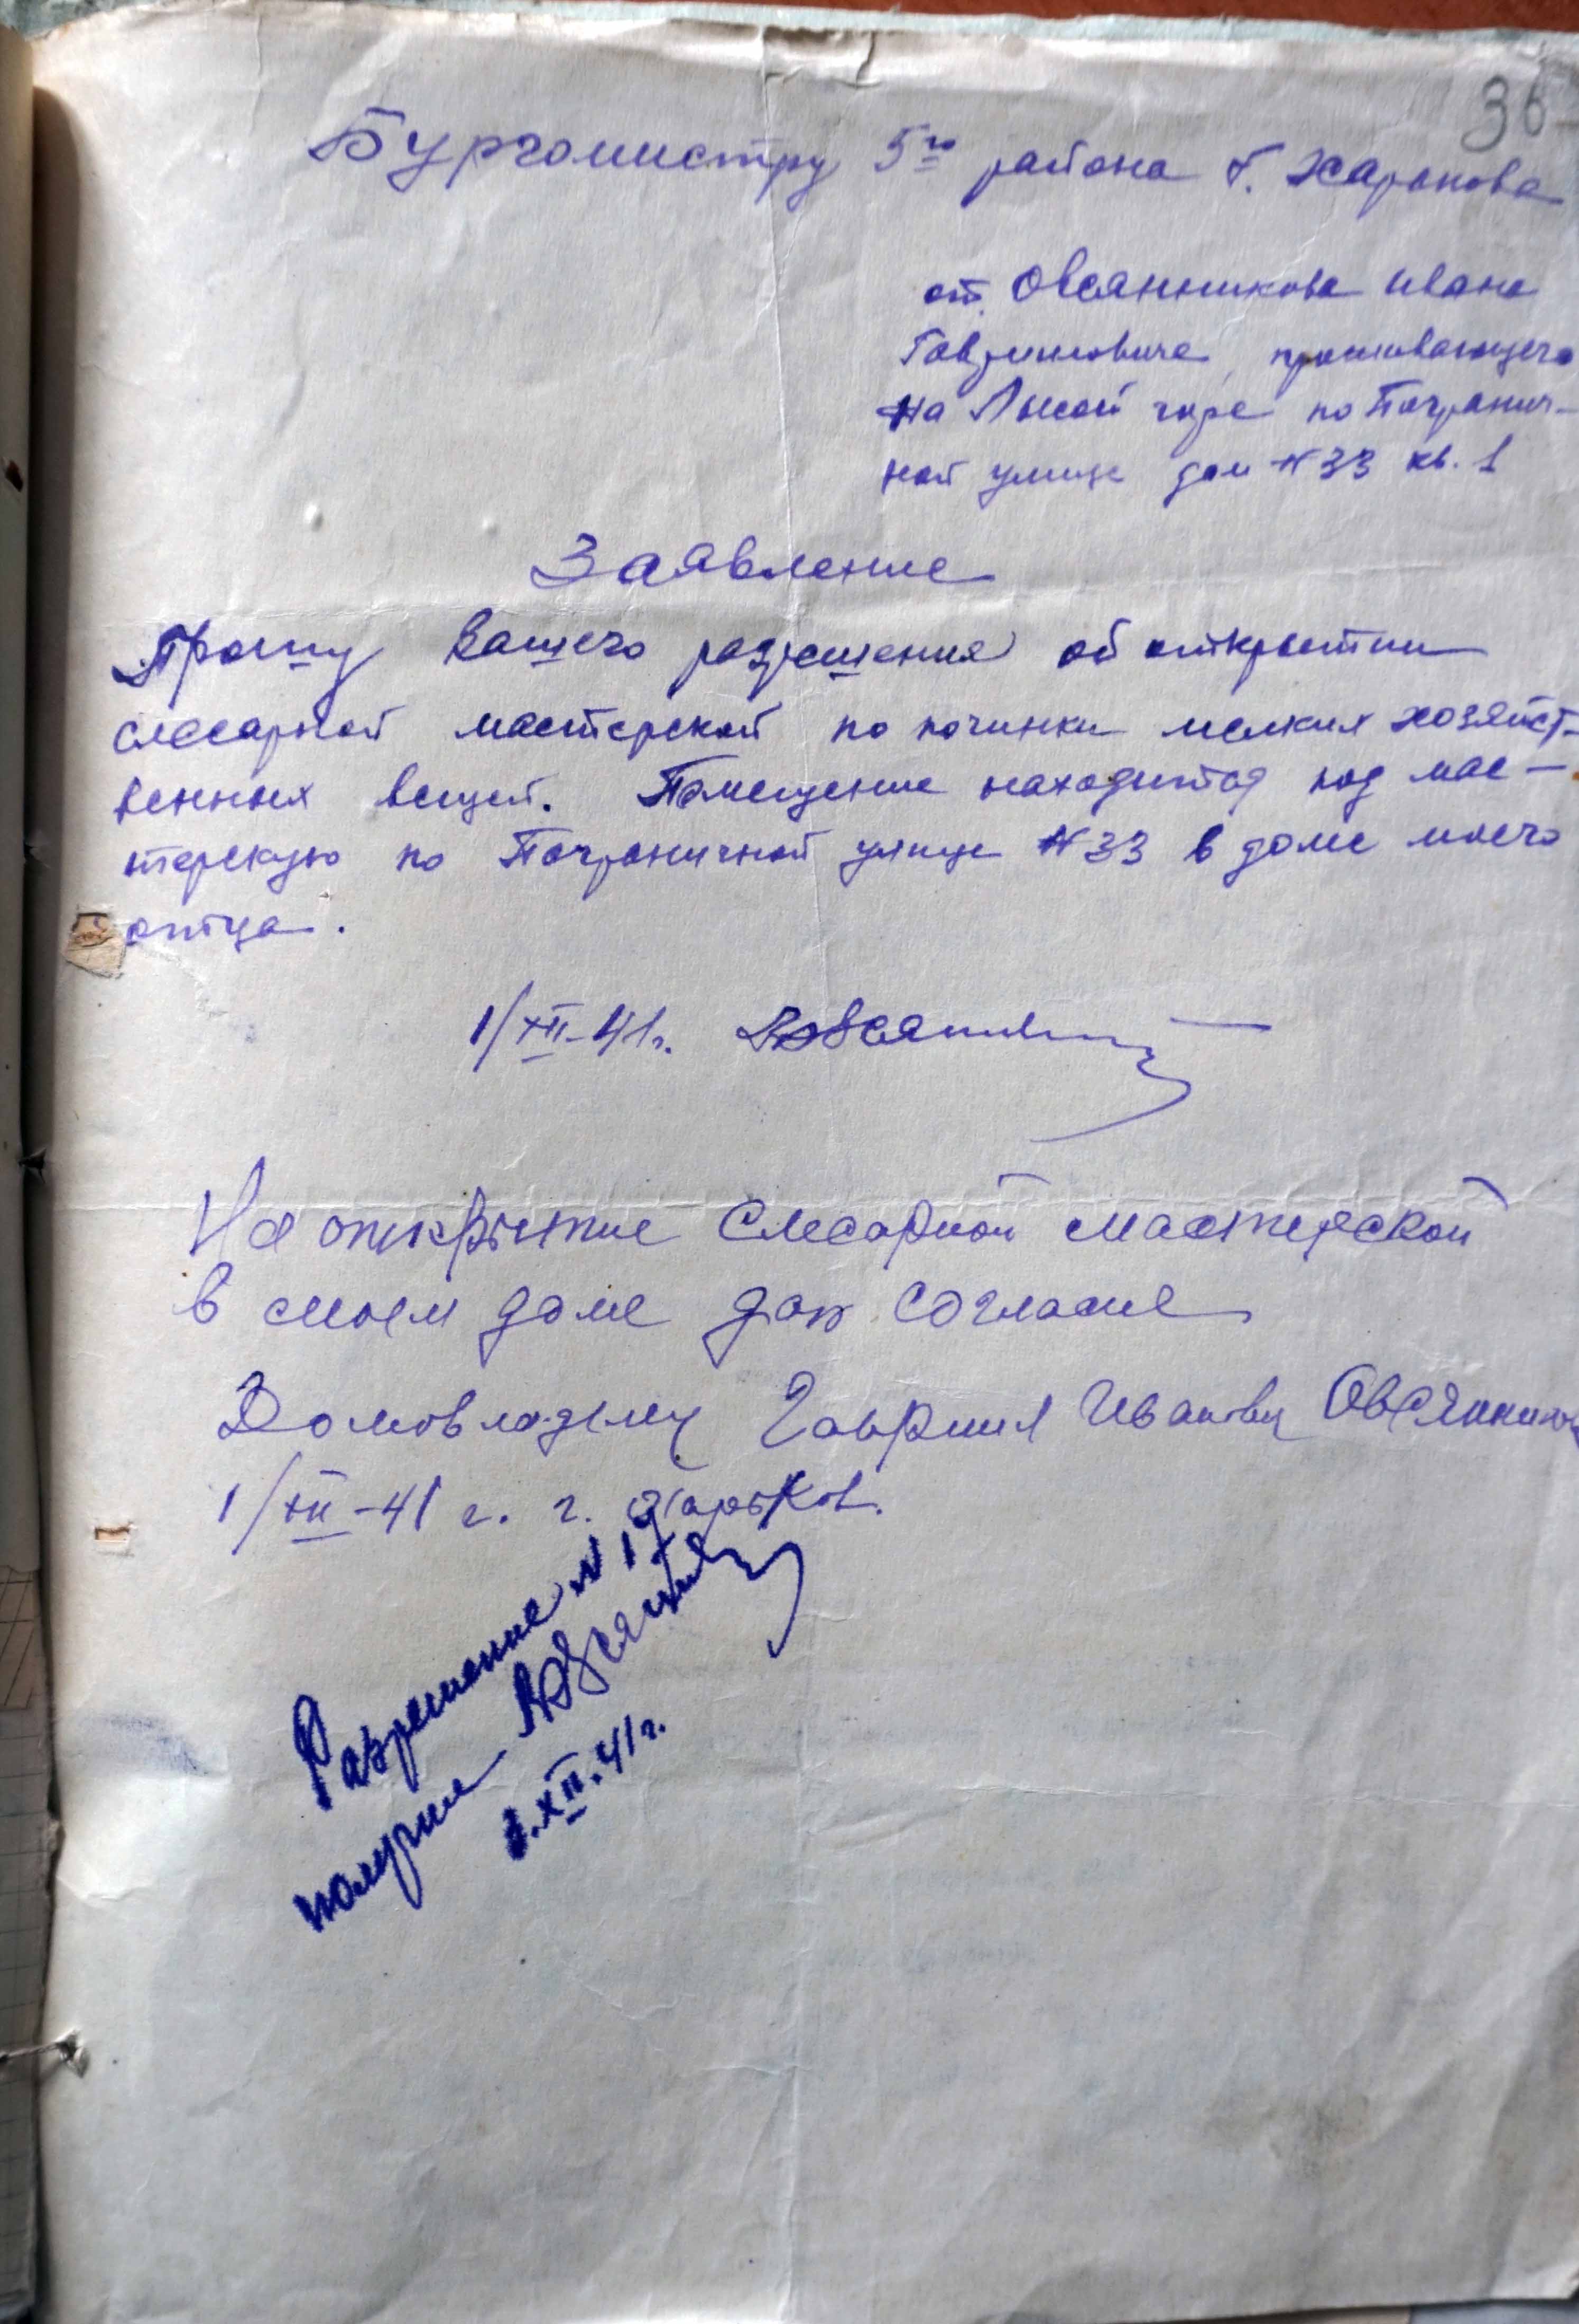 36
Бургомистру 5го района г. Харькова
от Овсянникова Ивана
Гавриловича, проживающего
на Лысой горе по Погранич-
ной улице дом №33 кв. 1
Заявление
Прошу Вашего разрешения об открытии
слесарной мастерской по починки мелких хозяйст-
венных вещей. Помещение находится под мас-
терскую по Пограничной улице №33 в доме моего
отца.
1/XII-41г.
На открытие слесарной мастерской
в своем доме даю согласие
Домовладелец Гавриил Иванович Овсянников
1/XII-41 г. г. Харьков.
Разрешение №19
получил
1.XII.41г.